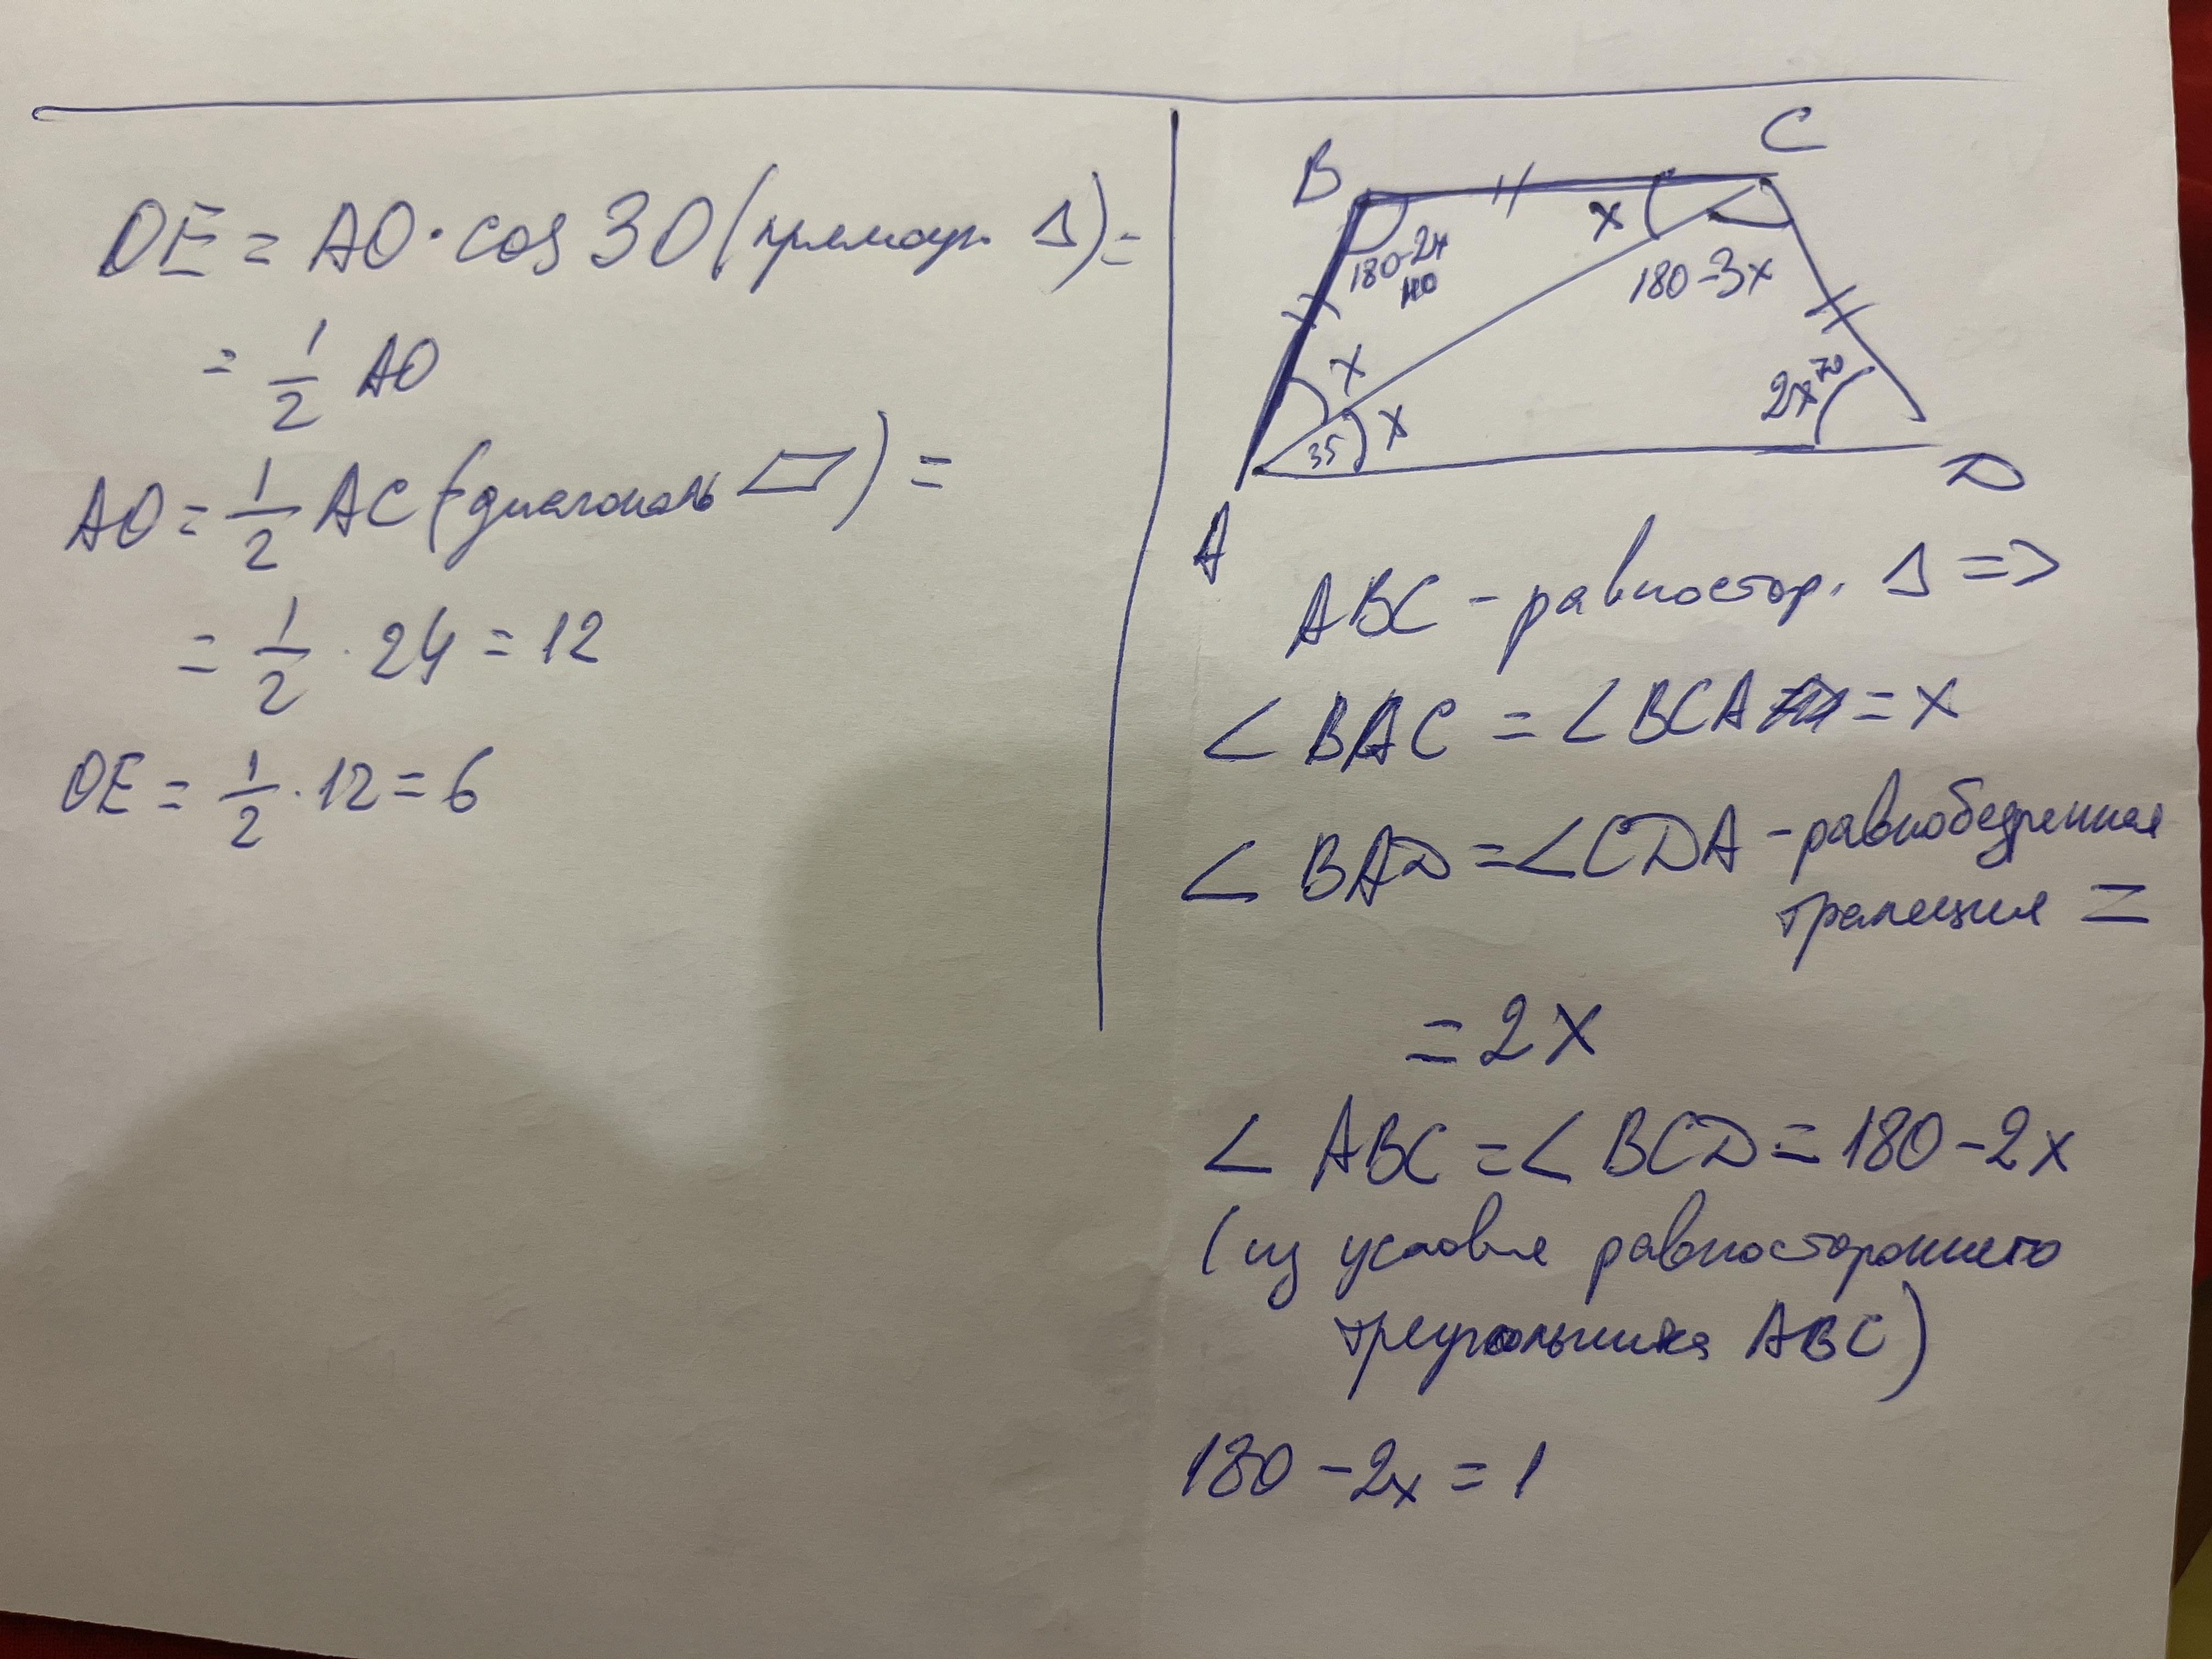 OE = AO · cos 30 (прямоуг. Δ) =
= 1/2 AO
AO = 1/2 AC (диагональ ▱) =
= 1/2 · 24 = 12
OE = 1/2 · 12 = 6
B
C
180-2x
110
x
180-3x
x
35
x
2x
70
A
D
ABC - равностор. Δ =>
∠ BAC = ∠ BCA = x
∠ BAD = ∠ CDA - равнобедренная
трапеция =
= 2x
∠ ABC = ∠ BCD = 180 - 2x
(из условия равностороннего
треугольника ABC)
180 - 2x = 1